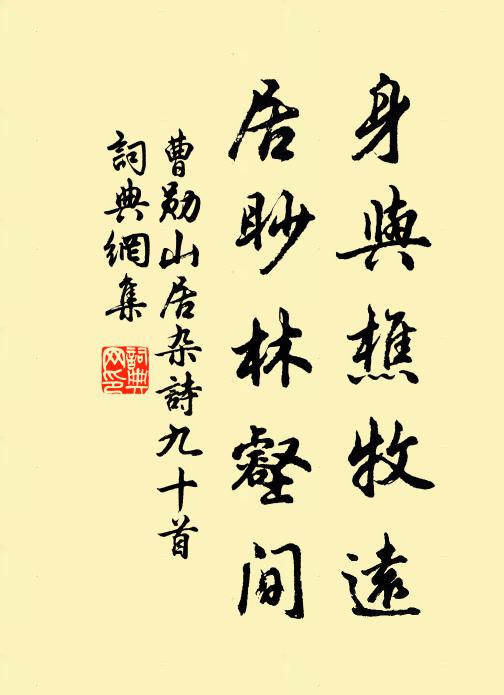 身與樵牧遠
居眇林壑間
曹勛山居杂詩九十首
詞典網集
詞典網印